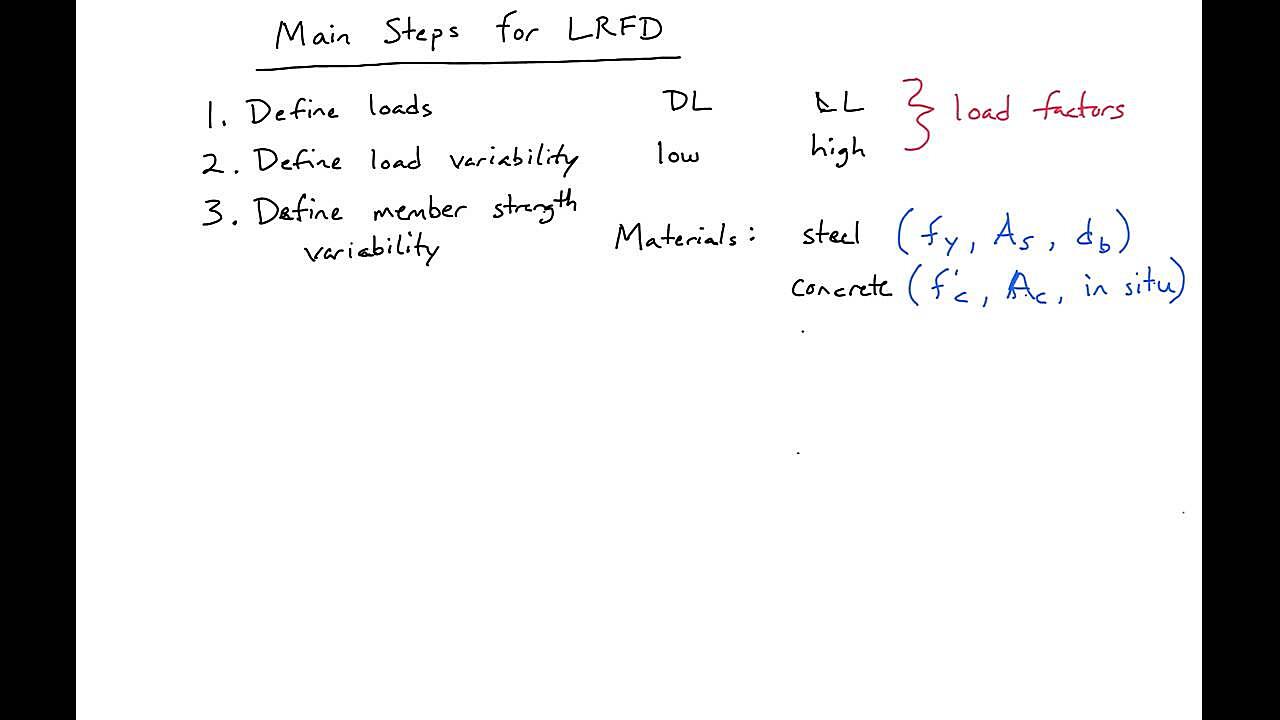 Main Steps for LRFD
1. Define loads DL LL } load factors
2. Define load variability low high
3. Define member strength
variability
Materials: steel (fy, As, db)
concrete (f'c, Ac, in situ)